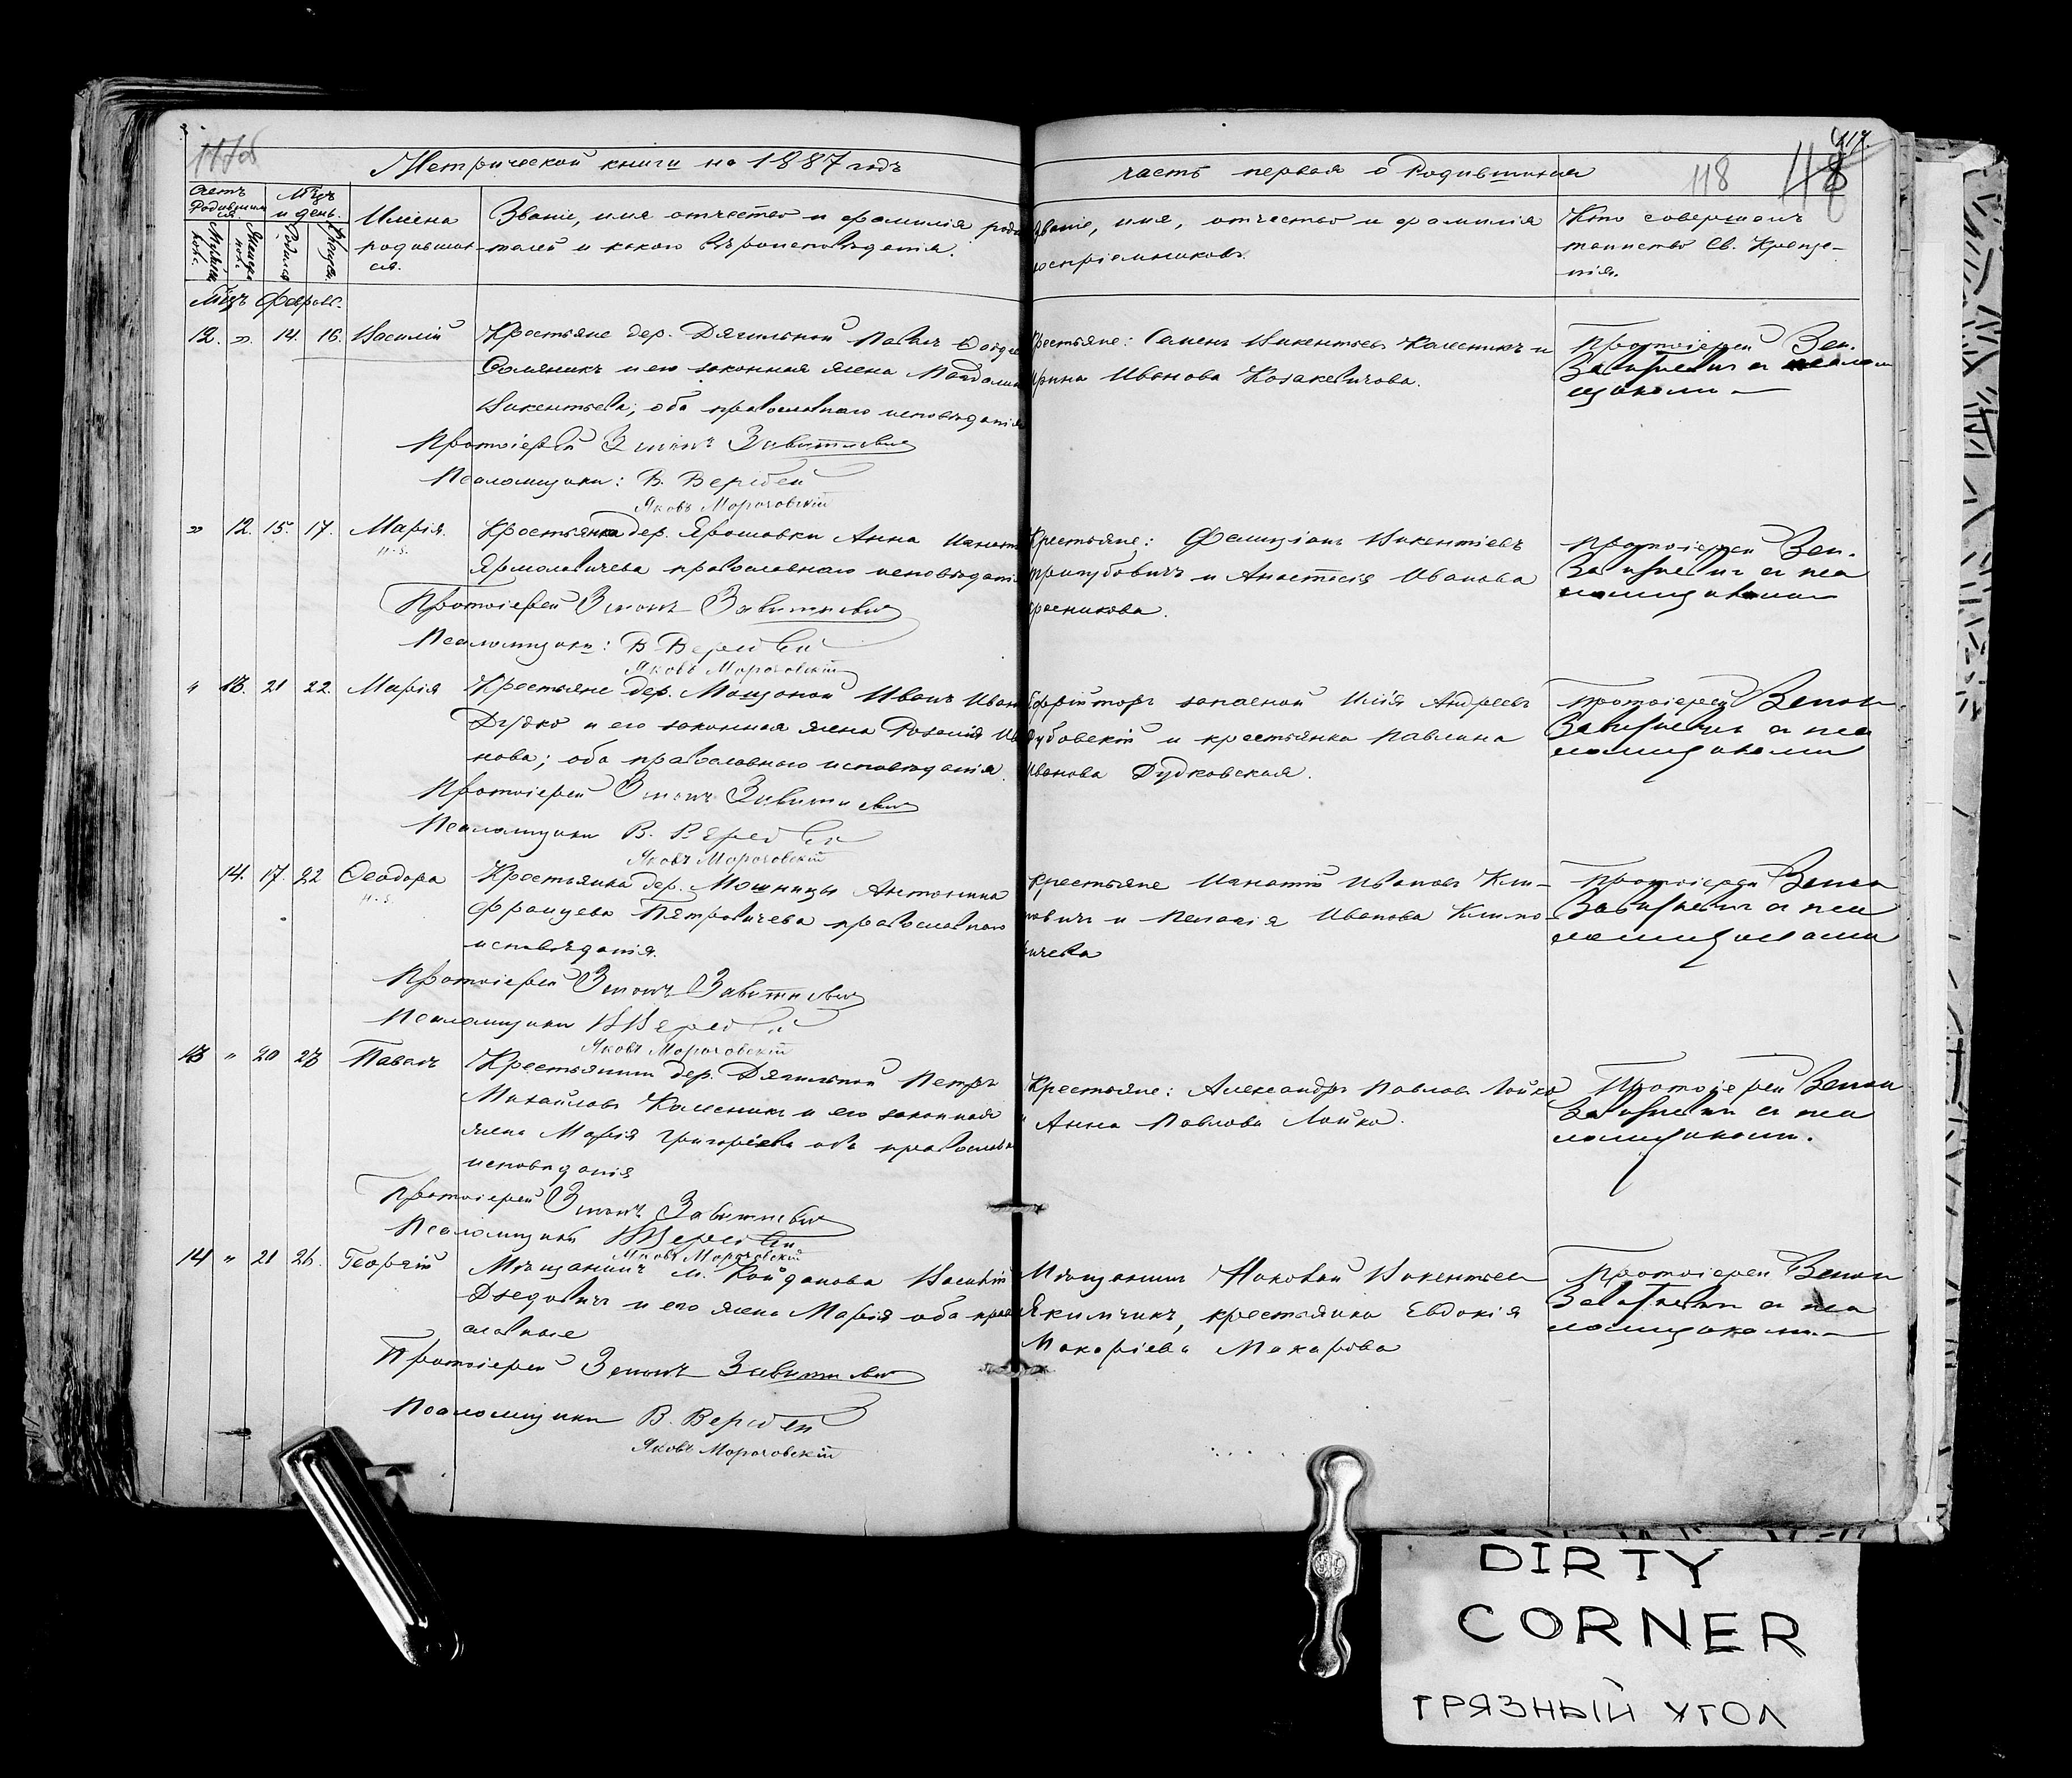 Метрической книги на 1887 годъ
часть первая о Родившихся
118
117.
Счетъ
Родившихся.
Мѣцъ
и день.
Мужеска
пол.
Женска
пол.
Родился
Имена
родивших-
ся.
Званіе, имя отчество и фамилія роди
телей и какого вѣроисповѣданія.
Званіе, имя, отчество и фамилія
воспріемниковъ.
Кто совершалъ
таинство Св. Креще-
нія.
Мѣцъ Февраль.
12. " 14. 16. Василій
Крестьяне дер. Дягильной Павелъ
и его законная жена
Викентьева, оба православнаго исповѣданія
Протоіерей Зинонъ Завитневич
Псаломщики: В. Вербей
Яковъ Морочовскій
Крестьяне: Семенъ Викентьевъ Калесникъ и
Ирина Иванова Козакевичова.
Протоіерей Зен.
Завитневич съ псалом
щиками
" 12. 15. 17. Марія.
н. з.
Крестьянка дер. Ярошовки Анна Игнат
Ярмоловичева православнаго исповѣданія
Протоіерей Зинонъ Завитневич
Псаломщики: В. Вербей
Яковъ Морочовскій
Крестьяне: Фелиціанъ Викентіевъ
и Анастасія Иванова
Протоіерей Зен.
Завитневич съ пса
ломщиками
" 13. 21 22. Марія
Крестьяне дер. Мощоной Иванъ Иван
Дудко и его законная жена Розалія Ива
нова; оба православнаго исповѣданія.
Протоіерей Зинонъ Завитневич
Псаломщики В. Вербей
Яковъ Морочовскій
Ефрейторъ запасной Илія Андреевъ
Дубовскій и крестьянка Павлина
Иванова Дудковская.
Протоіерей Зенон
Завитневич съ пса
ломщиками
14. 17. 22 Ѳеодора
н. з.
Крестьянка дер. Мощницы Антонина
Францева Петровичева православнаго
исповѣданія.
Протоіерей Зинонъ Завитневич
Псаломщики В. Вербей
Яковъ Морочовскій
крестьяне Игнатій Ивановъ Кли-
мовичъ и Пелагія Иванова Климо-
вичева
Протоіерей Зенон
Завитневич съ пса
ломщиками
13 " 20 23 Павелъ
Крестьянинъ дер. Дягильной Петръ
Михайловъ Калесникъ и его законная
жена Марія Григорьева оба православн
исповѣданія
Протоіерей Зинонъ Завитневич
Псаломщики В. Вербей
Яковъ Морочовскій
Крестьяне: Александръ Павловъ Лойко
и Анна Павлова Лойко.
Протоіерей Зенон
Завитневич съ пса
ломщиками.
14 " 21 26. Георгій
Мѣщанинъ м. Койданова Василій
Дзедовичъ и его жена Марія оба пра
славные
Протоіерей Зенонъ Завитневич
Псаломщики В. Вербей
Яковъ Морочовскій
Мѣщанинъ Викентьев
Якимчикъ, крестьянка Евдокія
Макаріева Макарова
Протоіерей Зенон
Завитневич съ пса
ломщиками
DIRTY
CORNER
ГРЯЗНЫЙ УГОЛ